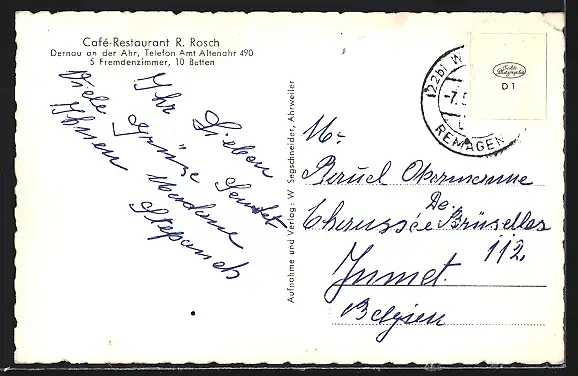 Café-Restaurant R. Rosch
Dernau an der Ahr, Telefon Amt Altenahr 490
5 Fremdenzimmer, 10 Betten
Ihr Lieben
Viele Grüsse Sendet
Ihnen Madame
Stepanek
Aufnahme und Verlag: W. Segschneider, Ahrweiler
(22b)
-7.5
REMAGEN
Echte
Photographie
D 1
M:
Obermanne
De
Chaussée Bruxelles
112,
Jumet.
Belgien